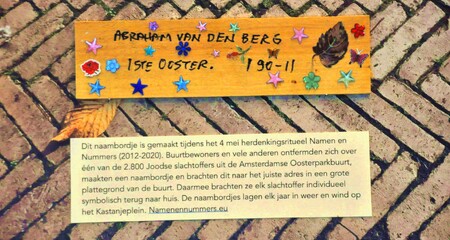 ABRAHAM VAN DEN BERG
1STE OOSTER. 190-II
Dit naambordje is gemaakt tijdens het 4 mei herdenkingsritueel Namen en
Nummers (2012-2020). Buurtbewoners en vele anderen ontfermden zich over
één van de 2.800 Joodse slachtoffers uit de Amsterdamse Oosterparkbuurt,
maakten een naambordje en brachten dit naar het juiste adres in een grote
plattegrond van de buurt. Daarmee brachten ze elk slachtoffer individueel
symbolisch terug naar huis. De naambordjes lagen elk jaar in weer en wind op
het Kastanjeplein. Namenennummers.eu